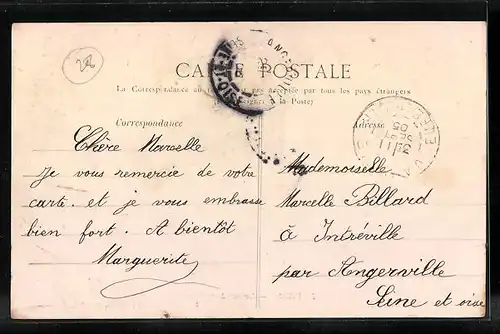 222
CARTE POSTALE
La Correspondance au pas acceptée par tous les pays étrangers
à la Poste)
Correspondance
Adresse
Chère Marselle
Je vous remercie de votre
carte. et je vous embrasse
bien fort. A bientôt
Marguerite
Mademoiselle
Marcelle Billard
à Intréville
par Angerville
Seine et oise